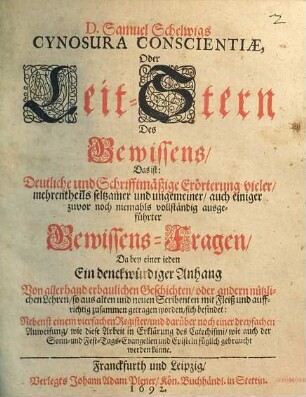 D. Samuel Schelwigs
CYNOSURA CONSCIENTIÆ,
Oder
Leit-Stern
Des
Gewissens/
Das ist:
Deutliche und Schrifftmäßige Erörterung vieler/
mehrentheils seltzamer und ungemeiner/ auch einiger
zuvor noch niemahls vollständig ausge-
führter
Gewissens-Fragen/
Da bey einer ieden
Ein denckwürdiger Anhang
Von allerhand erbaulichen Geschichten/ oder andern nützli-
chen Lehren/ so aus alten und neuen Scribenten mit Fleiß und auff-
richtig zusammen getragen worden/ sich befindet:
Nebenst einem vierfachen Register/ und darüber noch einer dreyfachen
Anweisung/ wie diese Arbeit in Erklärung des Catechismi/ wie auch der
Sonn- und Fest-Tags-Evangelien und Episteln füglich gebraucht
werden könne.
Franckfurth und Leipzig/
Verlegts Johann Adam Plener/ Kön. Buchhändl. in Stettin.
1692.